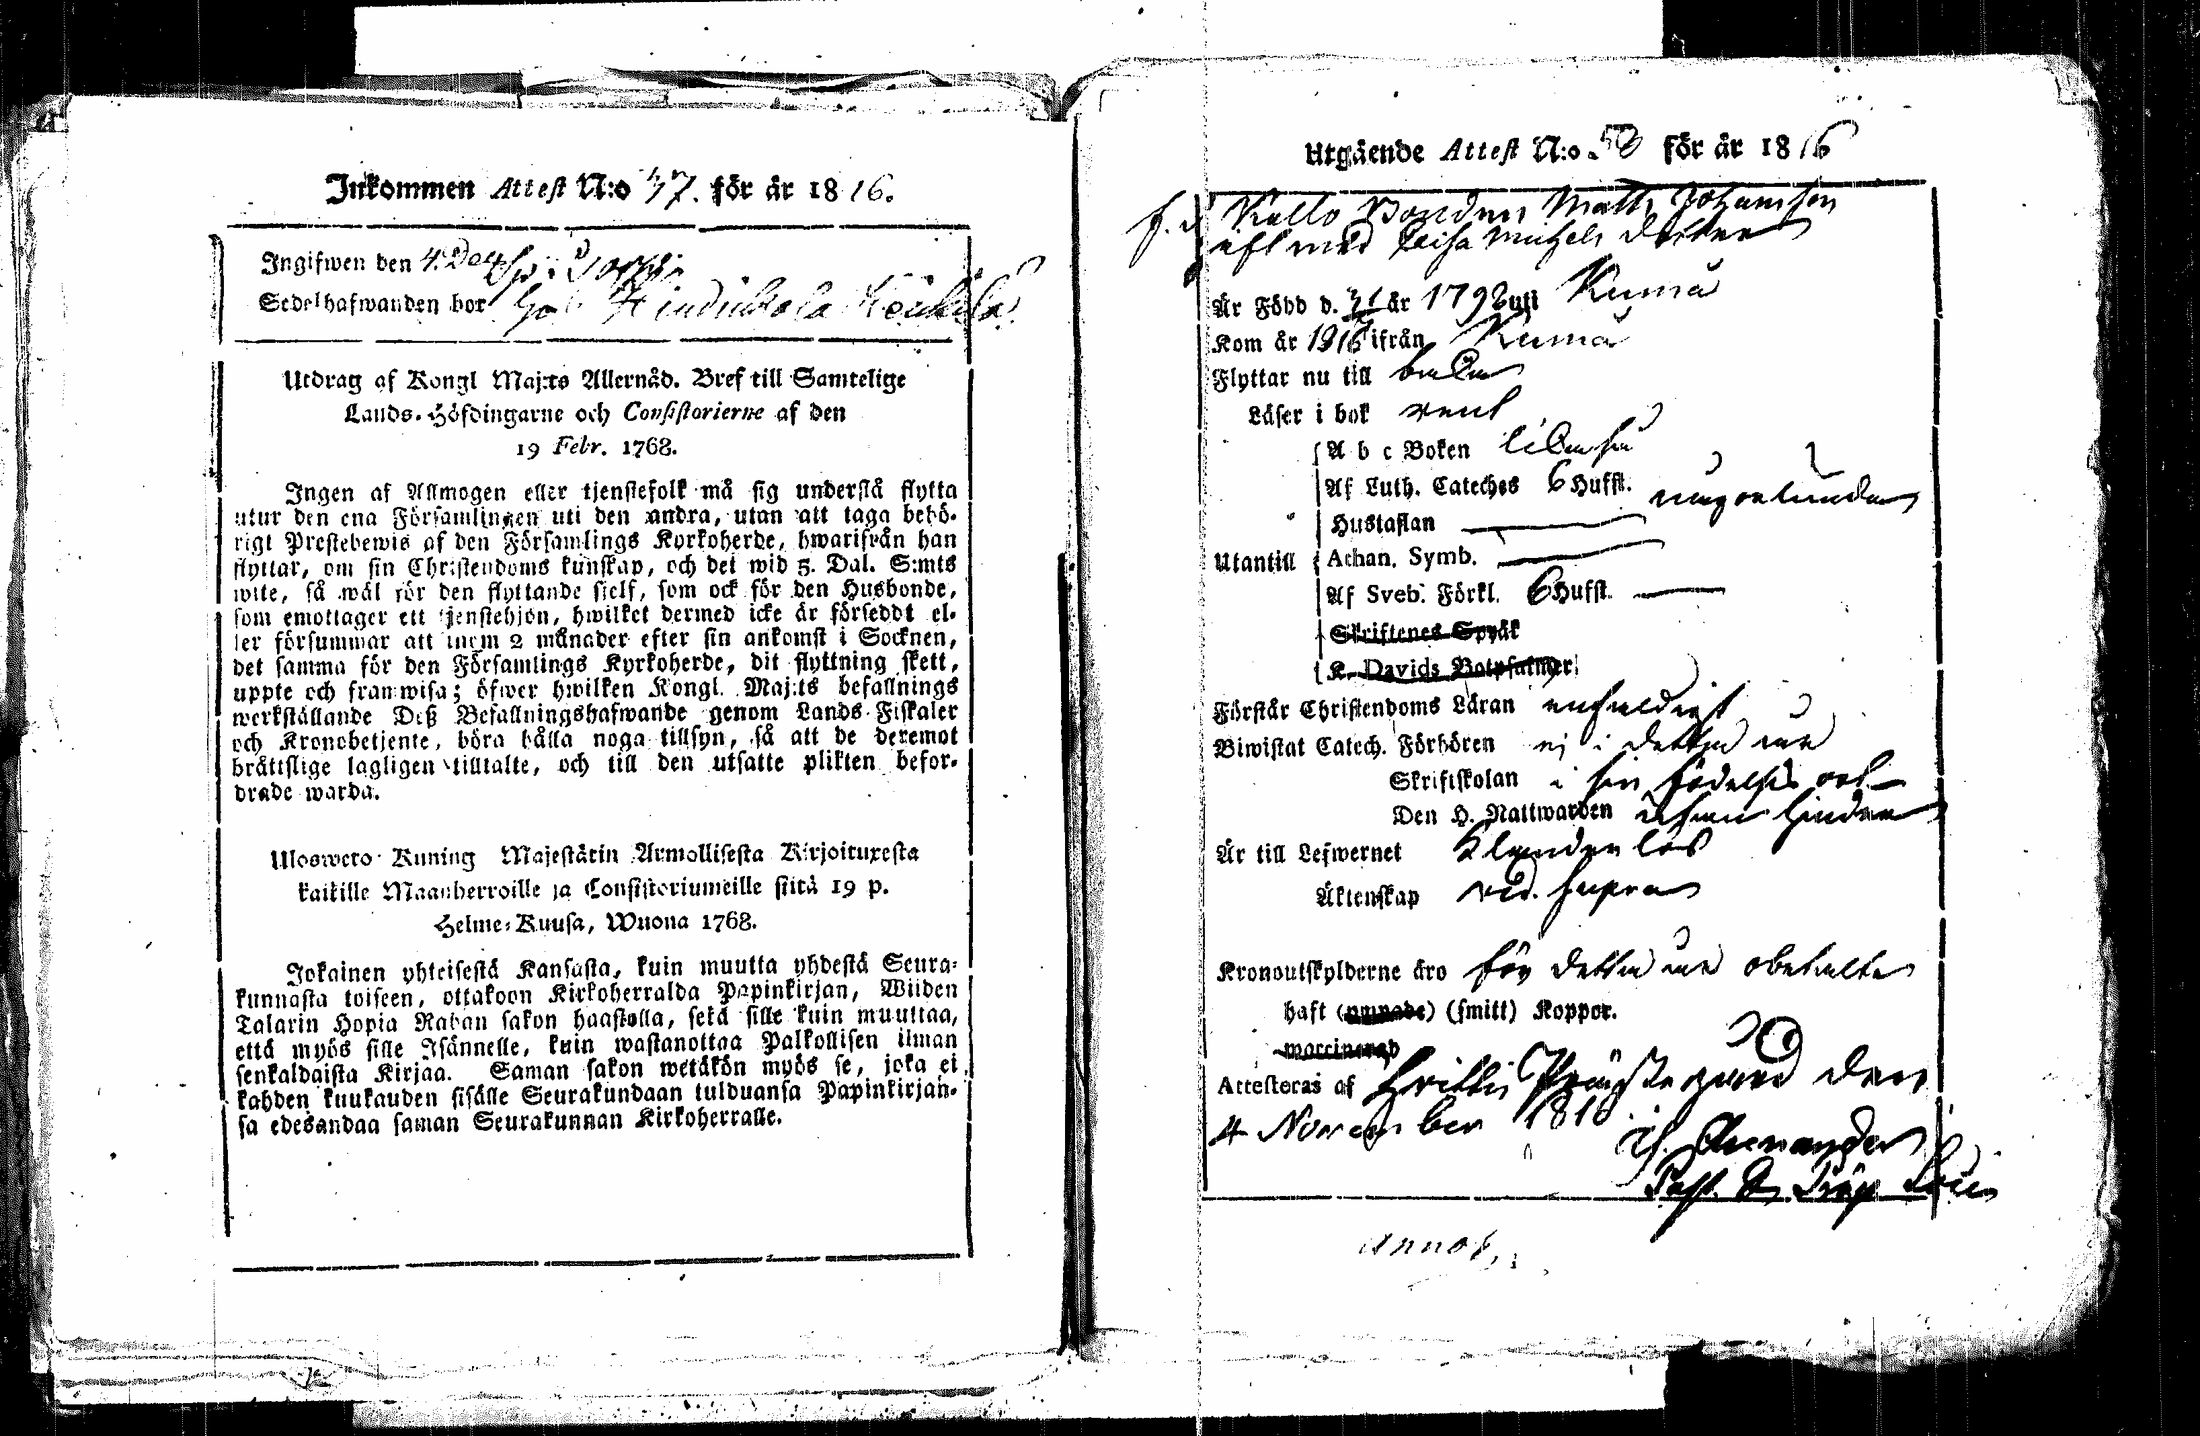 Inkommen Attest N:o 47. för år 1816.
Ingifwen den 4. Dec
Sedelhafwanden bor
Utdrag af Kongl Maj:ts Allernåd. Bref till Samtelige
Lands-Höfdingarne och Consistorierne af den
19 Febr. 1768.
Ingen af Allmogen eller tjenstefolk må sig understå flytta
utur den ena Församlingen uti den andra, utan att taga behö-
rigt Prestebewis af den Församlings Kyrkoherde, hwarifrån han
flyttar, om sin Christendoms kunskap, och det wid 5. Dal. S:mts
wite, så wäl för den flyttande sjelf, som ock för den Husbonde,
som emottager ett tjenstehjon, hwilket dermed icke är förseddt el-
ler försummar att inom 2 månader efter sin ankomst i Socknen,
det samma för den Församlings Kyrkoherde, dit flyttning skett,
uppte och framwisa; öfwer hwilken Kongl. Maj:ts befallnings
werkställande Deß Befallningshafwande genom Lands Fiskaler
och Kronobetjente, böra hålla noga tillsyn, så att de deremot
bråttslige lagligen tilltalte, och till den utsatte plikten befor-
drade warda.
Ulosweto Kuning Majestätin Armollisesta Kirjoituxesta
kaikille Maanherroille ja Consistoriumeille siitä 19 p.
Helme-Kuusa, Wuona 1768.
Jokainen yhteisestä Kansasta, kuin muutta yhdestä Seura-
kunnasta toiseen, ottakoon Kirkoherralda Papinkirjan, Wiiden
Talarin Hopia Rahan sakon haastolla, sekä sille kuin muuttaa,
että myös sille Isännelle, kuin wastanottaa Palkollisen ilman
senkaldaista Kirjaa. Saman sakon wetäkön myös se, joka ei
kahden kuukauden sisälle Seurakundaan tulduansa Papinkirjan-
sa edesandaa saman Seurakunnan Kirkoherralle.
Utgående Attest N:o 53 för år 1816
f.d. Kallo Bonden Matts Johansson
med Lisa Michels Dotter
Är Född d. 21 år 1792 uti Kumå
Kom år 1816 ifrån Kumå
Flyttar nu till
Läser i bok rent
A b c Boken likaså
Af Luth. Cateches 6 Hufst. någorlunda
Hustaflan
Utantill
Athan. Symb.
Af Sveb. Förkl. 6 Hufst.
Skriftenes Språk
K. Davids Botpsalmer
Förstår Christendoms Läran enfaldigt
Biwistat Catech. Förhören ej i detta år
Skriftskolan i sin födelse ort
Den H. Nattwarden utan hinder
Är till Lefwernet Klanderlös
Äktenskap vid. supra
Kronoutskylderne äro för detta år obetalte
haft (ympade) (smitt) Koppor.
warcinerad
Attesteras af Prästegård den
4 November 1816
Annot.